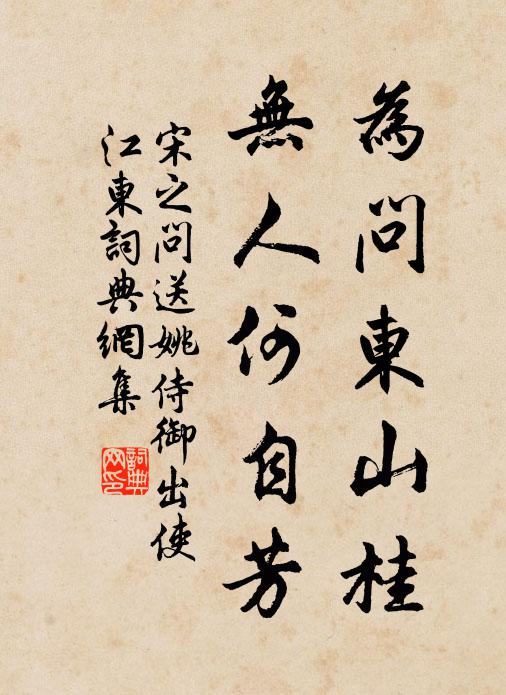 為問東山桂
無人何自芳
宋之問送姚侍御出使
江東詞典網集
詞典
网印